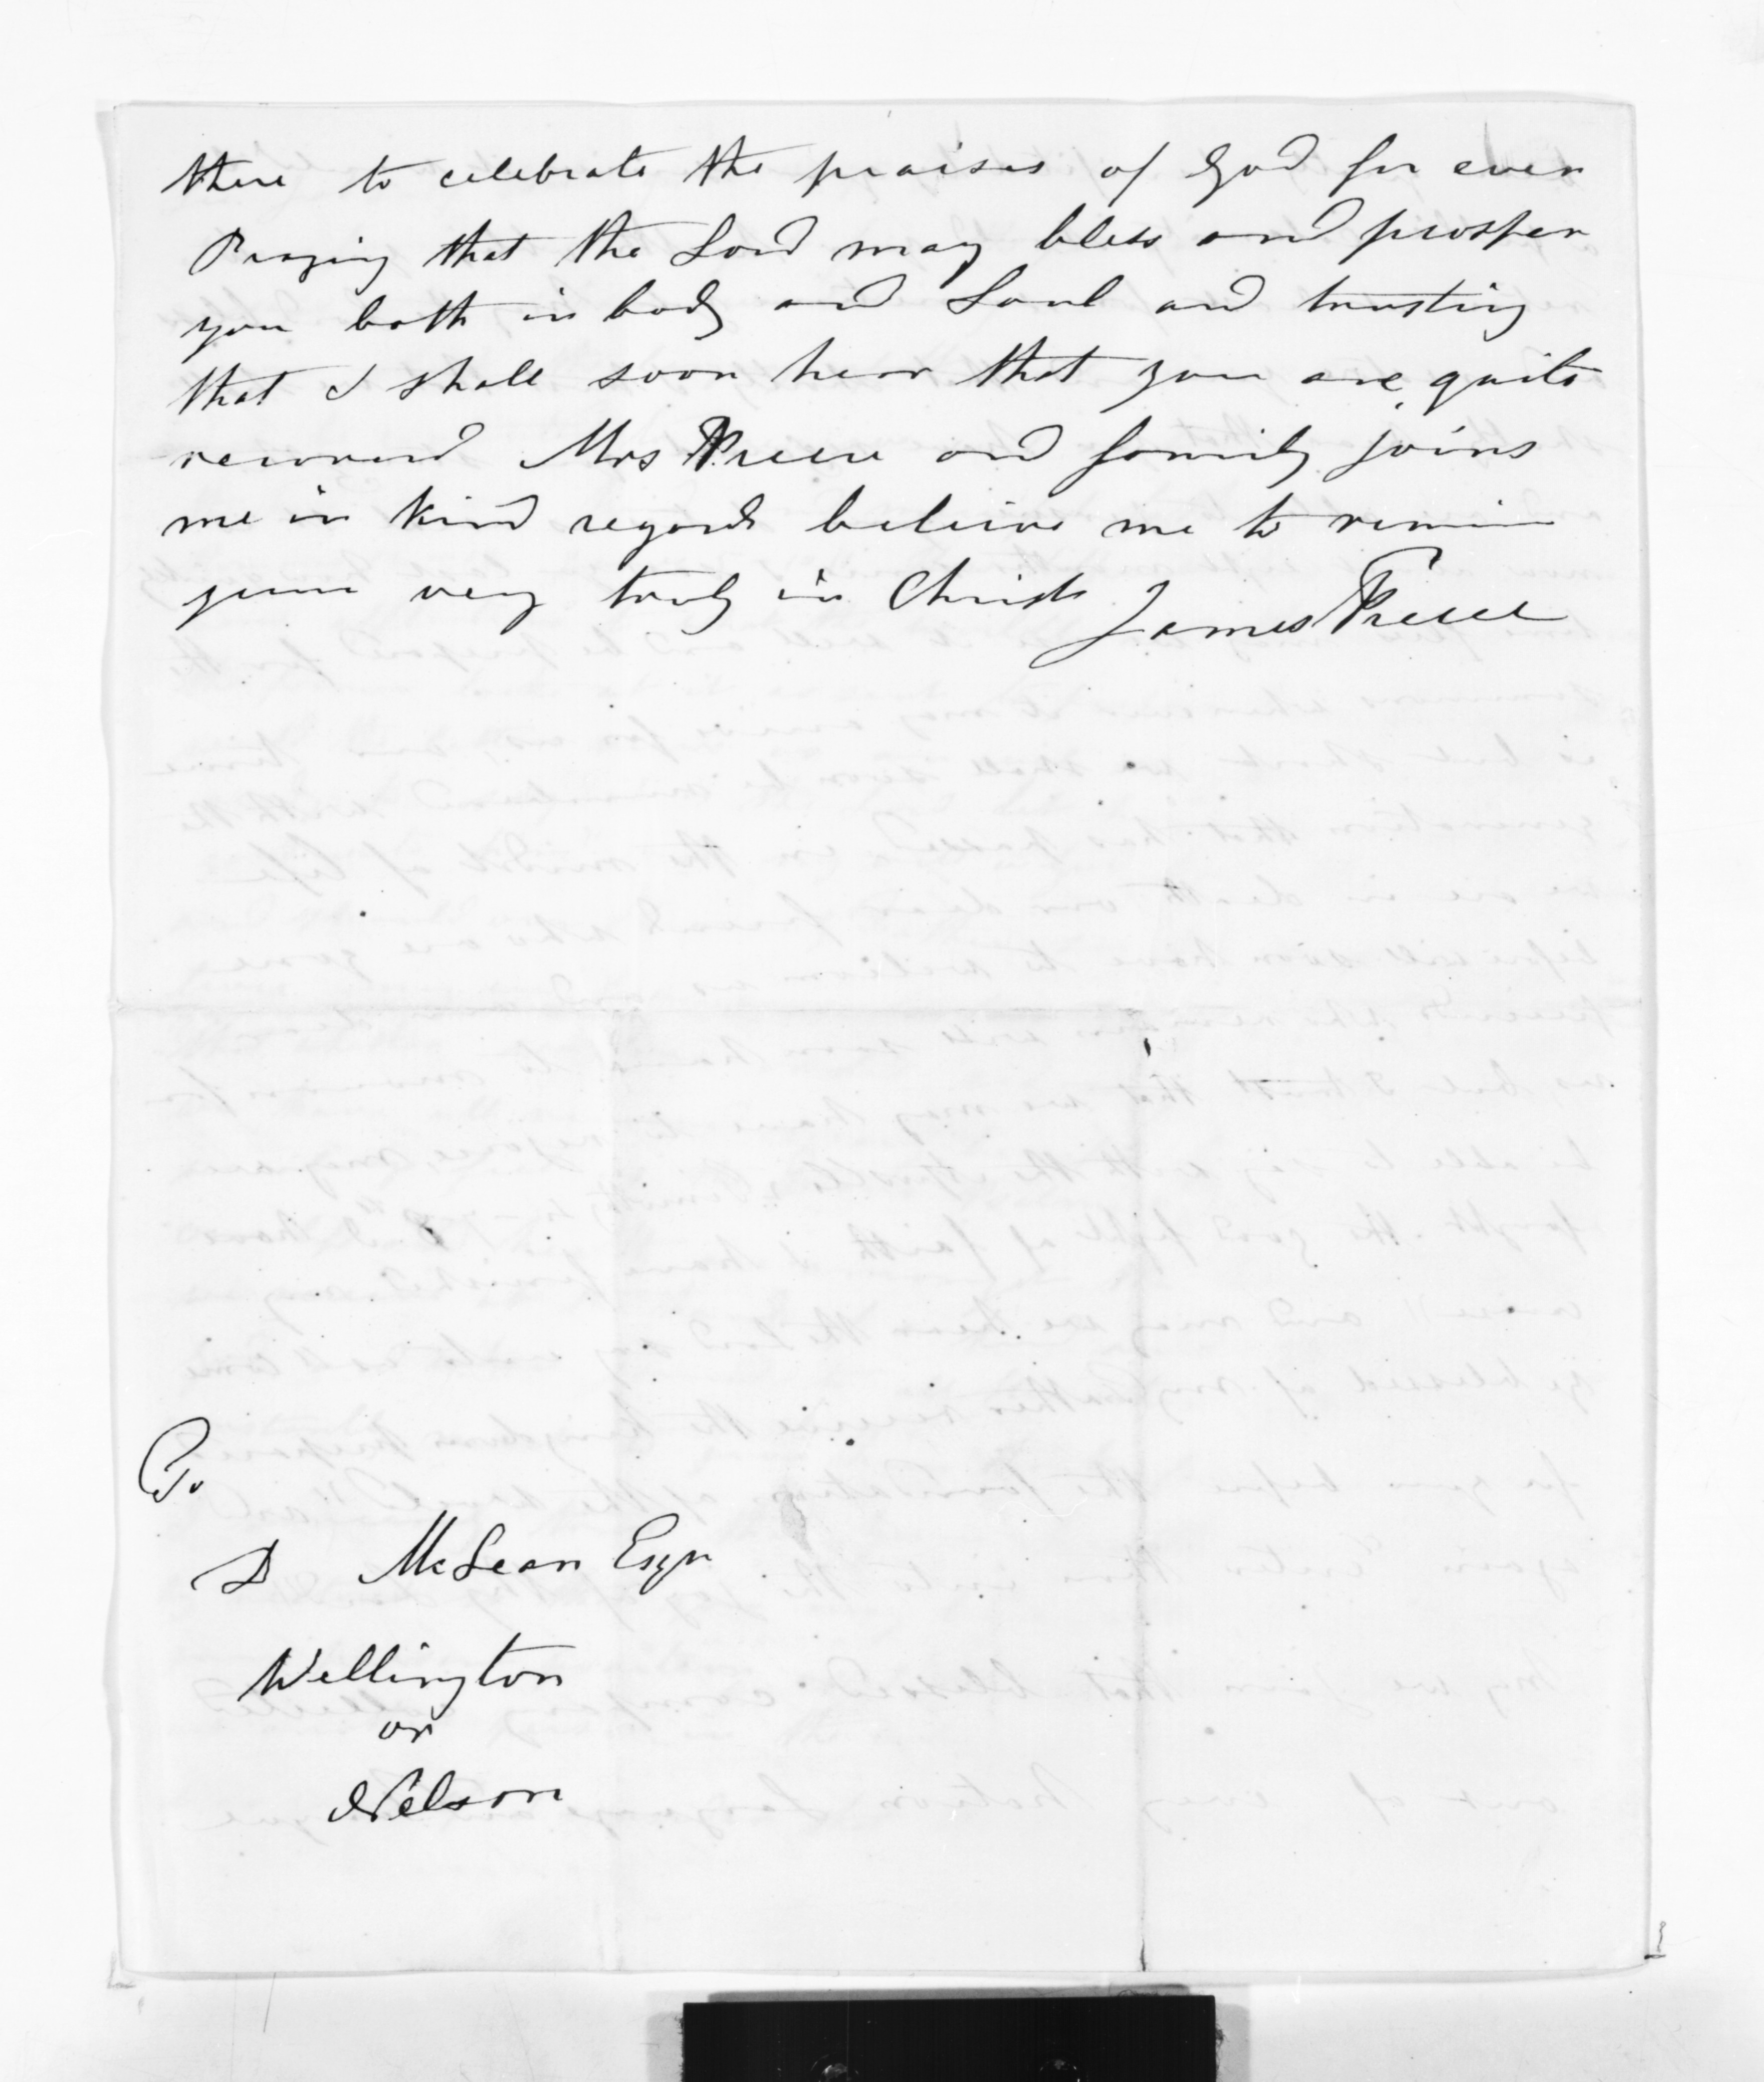 there to celebrate the praises of God for ever
Praying that the Lord may bless and prosper
you both in body and Soul and trusting
that I shall soon hear that you are quite
recovered Mrs Preece and family joins
me in kind regards believe me to remain
yours very truly in Christ
James Preece
To
D McLean Esqr
Wellington
or
Nelson